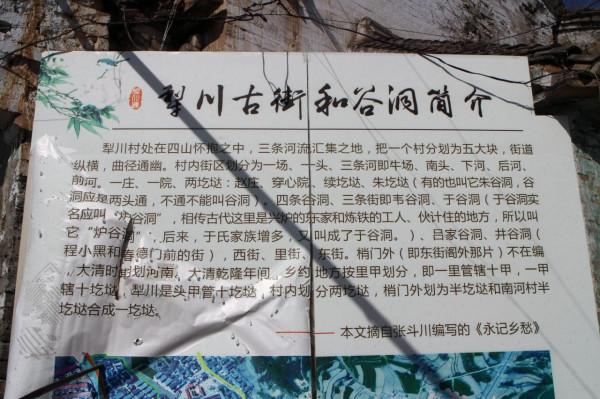 犁川古街和谷洞简介
犁川村处在四山怀抱之中，三条河流汇集之地，把一个村分划为五大块，街道
纵横，曲径通幽。村内街区划分为一场、一头、三条河即牛场、南头、下河、后河、
前河，一庄、一院、两圪垯：赵庄、穿心院、续圪垯、朱圪垯（有的也叫它朱谷洞，谷
洞应是两头通，不通不能叫谷洞）。四条谷洞、三条街即韦谷洞、于谷洞（于谷洞实
名应叫“炉谷洞”，相传古代这里是兴炉的东家和炼铁的工人、伙计住的地方，所以叫
它“炉谷洞”，后来，于氏家族增多，又叫成了于谷洞。）、吕家谷洞、井谷洞（
程小黑和春德门前的街），西街、里街、东街。梢门外（即东街阁外那片）不在编
，大清时留划河南。大清乾隆年间，乡约地方按里甲划分，即一里管辖十甲，一甲
辖十圪垯，犁川是头甲管十圪垯，村内划分两圪垯，梢门外划为半圪垯和南河村半
圪垯合成一圪垯。
本文摘自张斗川编写的《永记乡愁》